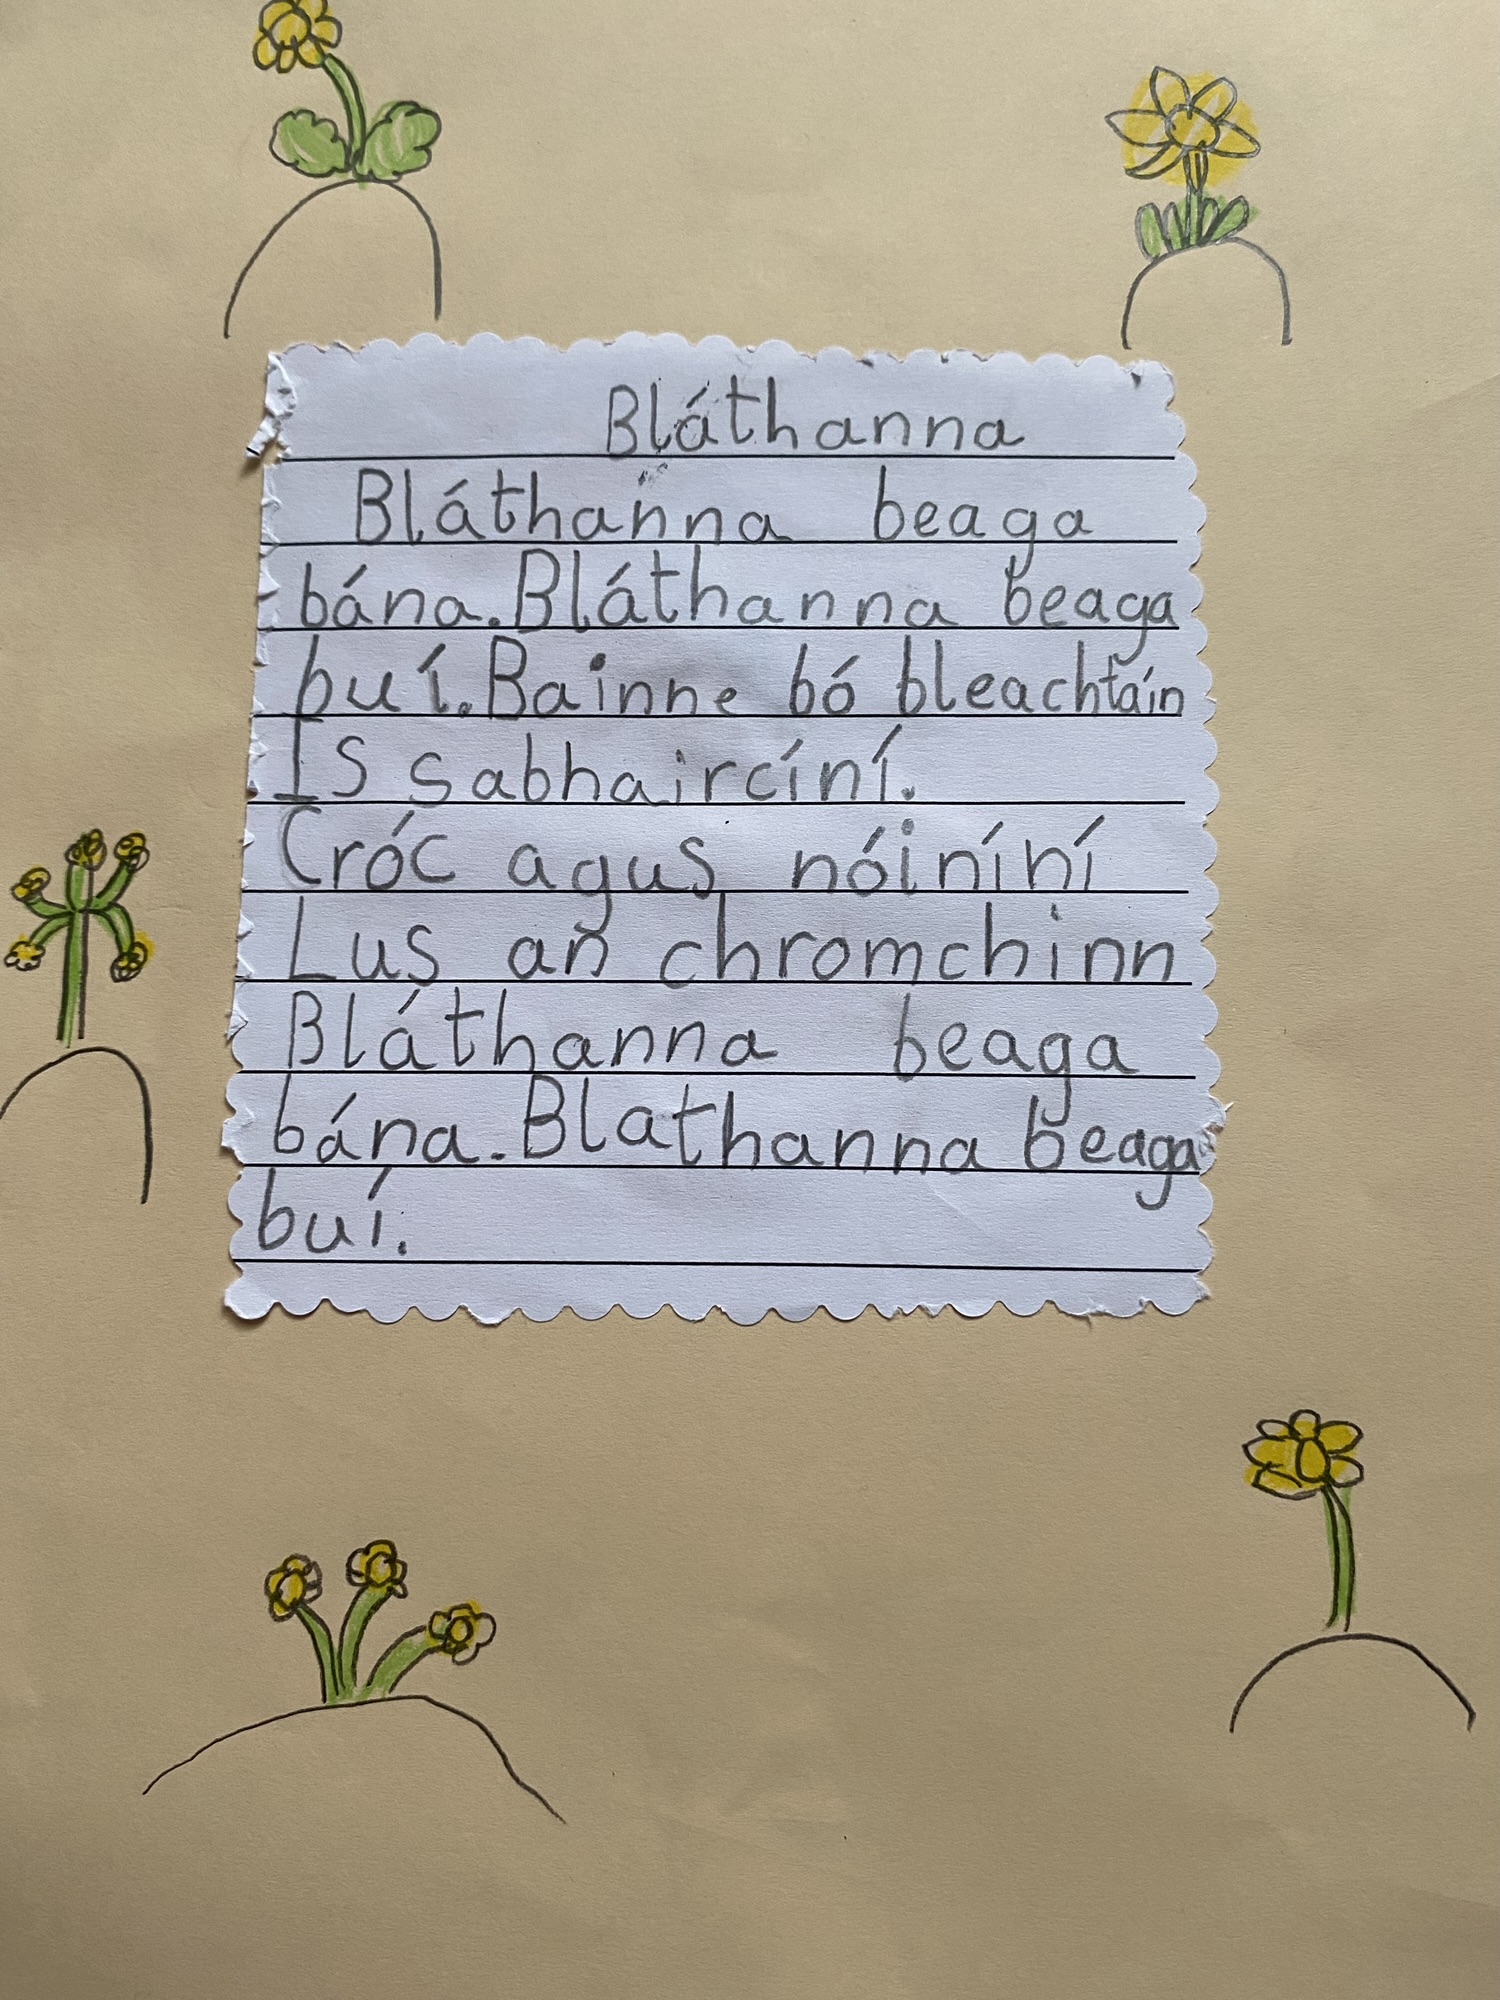 Bláthanna
Bláthanna beaga
bána. Bláthanna beaga
buí. Bainne bó bleachtáin
Is sabhaircíní.
Cróc agus nóiníní
Lus an chromchinn
Bláthanna beaga
bána. Blathanna beaga
buí.